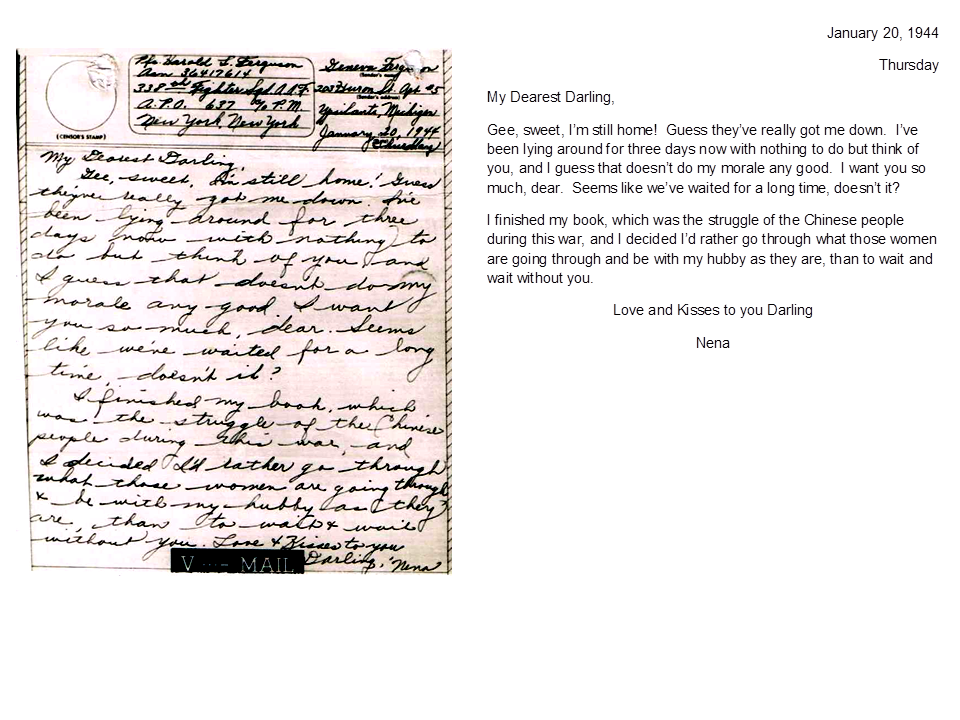 Pfc. Harold L. Ferguson
Asn 36417614
338th Fighter Sqd A.A.F.
A.P.O. 637 c/o P.M.
New York, New York
(CENSOR'S STAMP)
Geneva Ferguson
(Sender's name)
203 Huron St. Apt #5
(Sender's address)
Ypsilanti, Michigan
January 20, 1944
Thursday
My Dearest Darling,
Gee, sweet, I'm still home! Guess
they've really got me down. I've
been lying around for three
days now with nothing to
do but think of you, and
I guess that doesn't do my
morale any good. I want
you so much, dear. Seems
like we've waited for a long
time, doesn't it?
I finished my book, which
was the struggle of the Chinese
people during this war, and
I decided I'd rather go through
what those women are going through
& be with my hubby as they
are, than to wait & wait
without you. Love & Kisses to you
Darling, Nena
V ···- MAIL
January 20, 1944
Thursday
My Dearest Darling,
Gee, sweet, I'm still home!  Guess they've really got me down.  I've
been lying around for three days now with nothing to do but think of
you, and I guess that doesn't do my morale any good.  I want you so
much, dear.  Seems like we've waited for a long time, doesn't it?
I finished my book, which was the struggle of the Chinese people
during this war, and I decided I'd rather go through what those women
are going through and be with my hubby as they are, than to wait and
wait without you.
Love and Kisses to you Darling
Nena